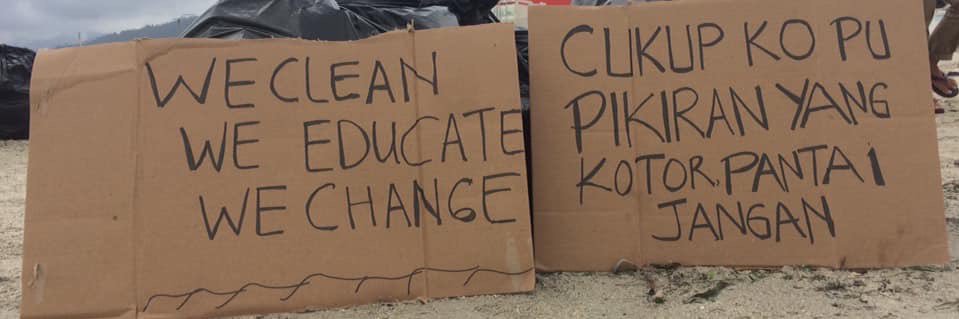 WE CLEAN
WE EDUCATE
WE CHANGE
CUKUP KO PU
PIKIRAN YANG
KOTOR, PANTAI
JANGAN